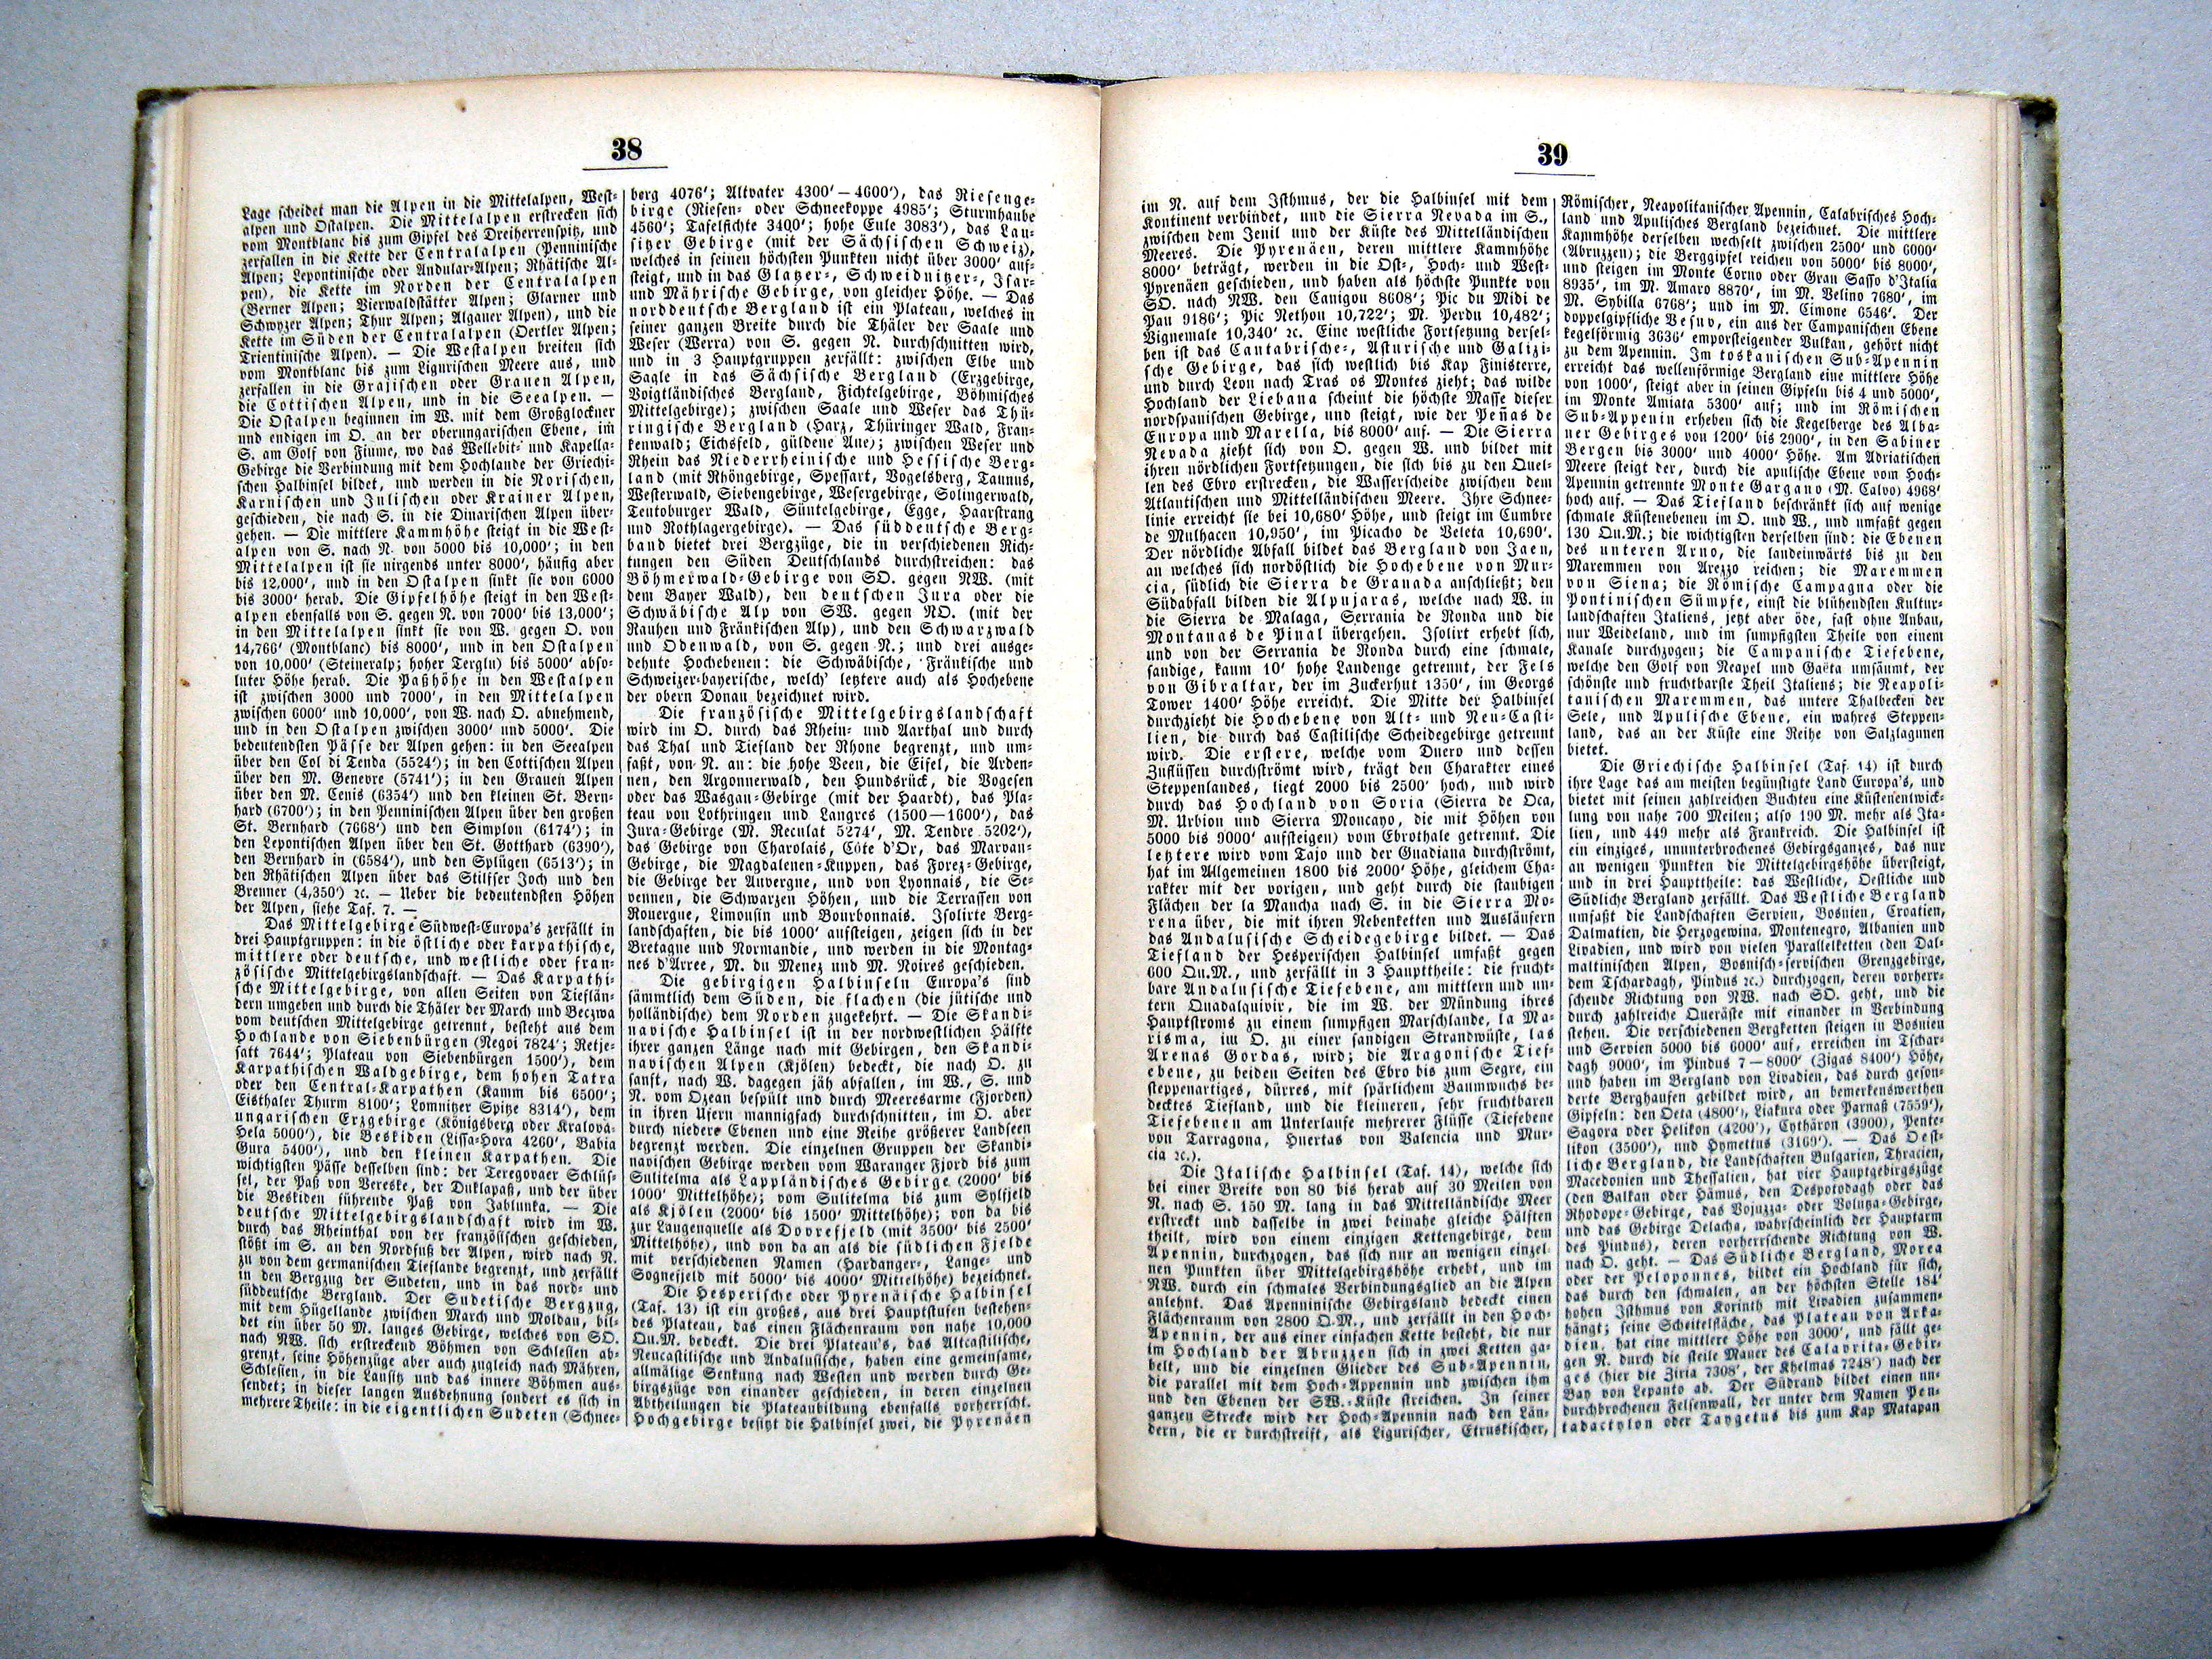 38
Lage scheidet man die Alpen in die Mittelalpen, West-
alpen und Ostalpen. Die Mittelalpen erstrecken sich
vom Montblanc bis zum Gipfel des Dreiherrenspitz, und
zerfallen in die Kette der Centralalpen (Penninische
Alpen; Lepontinische oder Andular-Alpen; Rhätische Al-
pen), die Kette im Norden der Centralalpen
(Berner Alpen; Vierwaldstätter Alpen; Glarner und
Schwyzer Alpen; Thur Alpen; Algauer Alpen), und die
Kette im Süden der Centralalpen (Oertler Alpen;
Trientinische Alpen). — Die Westalpen breiten sich
vom Montblanc bis zum Ligurischen Meere aus, und
zerfallen in die Grajischen oder Grauen Alpen,
die Cottischen Alpen, und in die Seealpen. —
Die Ostalpen beginnen im W. mit dem Großglockner
und endigen im O. an der oberungarischen Ebene, im
S. am Golf von Fiume, wo das Wellebit- und Kapella-
Gebirge die Verbindung mit dem Hochlande der Griechi-
schen Halbinsel bildet, und werden in die Norischen,
Karnischen und Julischen oder Krainer Alpen,
geschieden, die nach S. in die Dinarischen Alpen über-
gehen. — Die mittlere Kammhöhe steigt in die West-
alpen von S. nach N. von 5000 bis 10,000'; in den
Mittelalpen ist sie nirgends unter 8000', häufig aber
bis 12,000', und in den Ostalpen sinkt sie von 6000
bis 3000' herab. Die Gipfelhöhe steigt in den West-
alpen ebenfalls von S. gegen N. von 7000' bis 13,000';
in den Mittelalpen sinkt sie von W. gegen O. von
14,766' (Montblanc) bis 8000', und in den Ostalpen
von 10,000' (Steineralp; hoher Terglu) bis 5000' abso-
luter Höhe herab. Die Paßhöhe in den Westalpen
ist zwischen 3000 und 7000', in den Mittelalpen
zwischen 6000' und 10,000', von W. nach O. abnehmend,
und in den Ostalpen zwischen 3000' und 5000'. Die
bedeutendsten Pässe der Alpen gehen: in den Seealpen
über den Col di Tenda (5524'); in den Cottischen Alpen
über den M. Genevre (5741'); in den Grauen Alpen
über den M. Cenis (6354') und den kleinen St. Bern-
hard (6700'); in den Penninischen Alpen über den großen
St. Bernhard (7668') und den Simplon (6174'); in
den Lepontischen Alpen über den St. Gotthard (6390'),
den Bernhard in (6584'), und den Splügen (6513'); in
den Rhätischen Alpen über das Stilfser Joch und den
Brenner (4,350') ꝛc. — Ueber die bedeutendsten Höhen
der Alpen, siehe Taf. 7. —
Das Mittelgebirge Südwest-Europa's zerfällt in
drei Hauptgruppen: in die östliche oder karpathische,
mittlere oder deutsche, und westliche oder fran-
zösische Mittelgebirgslandschaft. — Das Karpathi-
sche Mittelgebirge, von allen Seiten von Tieflän-
dern umgeben und durch die Thäler der March und Beczwa
vom deutschen Mittelgebirge getrennt, besteht aus dem
Hochlande von Siebenbürgen (Negoi 7824'; Retje-
satt 7644'; Plateau von Siebenbürgen 1500'), dem
Karpathischen Waldgebirge, dem hohen Tatra
oder den Central-Karpathen (Kamm bis 6500';
Eisthaler Thurm 8100'; Lomnitzer Spitze 8314'), dem
ungarischen Erzgebirge (Königsberg oder Kralova-
Hela 5000'), die Beskiden (Lissa-Hora 4260', Babia
Gura 5400'), und den kleinen Karpathen. Die
wichtigsten Pässe desselben sind: der Teregovaer Schlüs-
sel, der Paß von Vereske, der Duklapaß, und der über
die Beskiden führende Paß von Jablunka. — Die
deutsche Mittelgebirgslandschaft wird im W.
durch das Rheinthal von der französischen geschieden,
stößt im S. an den Nordfuß der Alpen, wird nach N.
zu von dem germanischen Tieflande begrenzt, und zerfällt
in den Bergzug der Sudeten, und in das nord- und
süddeutsche Bergland. Der Sudetische Bergzug,
mit dem Hügellande zwischen March und Moldau, bil-
det ein über 50 M. langes Gebirge, welches von SO.
nach NW. sich erstreckend Böhmen von Schlesien ab-
grenzt, seine Höhenzüge aber auch zugleich nach Mähren,
Schlesien, in die Lausitz und das innere Böhmen aus-
sendet; in dieser langen Ausdehnung sondert es sich in
mehrere Theile: in die eigentlichen Sudeten (Schnee-
berg 4076'; Altvater 4300'—4600'), das Riesenge-
birge (Riesen- oder Schneekoppe 4985'; Sturmhaube
4560'; Tafelfichte 3400'; hohe Eule 3083'), das Lau-
sitzer Gebirge (mit der Sächsischen Schweiz),
welches in seinen höchsten Punkten nicht über 3000' auf-
steigt, und in das Glatzer-, Schweidnitzer-, Isar-
und Mährische Gebirge, von gleicher Höhe. — Das
norddeutsche Bergland ist ein Plateau, welches in
seiner ganzen Breite durch die Thäler der Saale und
Weser (Werra) von S. gegen N. durchschnitten wird,
und in 3 Hauptgruppen zerfällt: zwischen Elbe und
Saale in das Sächsische Bergland (Erzgebirge,
Voigtländisches Bergland, Fichtelgebirge, Böhmisches
Mittelgebirge); zwischen Saale und Weser das Thü-
ringische Bergland (Harz, Thüringer Wald, Fran-
kenwald; Eichsfeld, güldene Aue); zwischen Weser und
Rhein das Niederrheinische und Hessische Berg-
land (mit Rhöngebirge, Spessart, Vogelsberg, Taunus,
Westerwald, Siebengebirge, Wesergebirge, Solingerwald,
Teutoburger Wald, Süntelgebirge, Egge, Haarstrang
und Rothlagergebirge). — Das süddeutsche Berg-
band bietet drei Bergzüge, die in verschiedenen Rich-
tungen den Süden Deutschlands durchstreichen: das
Böhmerwald-Gebirge von SO. gegen NW. (mit
dem Bayer Wald), den deutschen Jura oder die
Schwäbische Alp von SW. gegen NO. (mit der
Rauhen und Fränkischen Alp), und den Schwarzwald
und Odenwald, von S. gegen N.; und drei ausge-
dehnte Hochebenen: die Schwäbische, Fränkische und
Schweizer-bayerische, welch' letztere auch als Hochebene
der obern Donau bezeichnet wird.
Die französische Mittelgebirgslandschaft
wird im O. durch das Rhein- und Aarthal und durch
das Thal und Tiefland der Rhone begrenzt, und um-
faßt, von N. an: die hohe Veen, die Eifel, die Arden-
nen, den Argonnerwald, den Hundsrück, die Vogesen
oder das Wasgau-Gebirge (mit der Haardt), das Pla-
teau von Lothringen und Langres (1500—1600'), das
Jura-Gebirge (M. Reculat 5274', M. Tendre 5202'),
das Gebirge von Charolais, Côte d'Or, das Morvan-
Gebirge, die Magdalenen-Kuppen, das Forez-Gebirge,
die Gebirge der Auvergne, und von Lyonnais, die Se-
vennen, die Schwarzen Höhen, und die Terrassen von
Rouergue, Limousin und Bourbonnais. Isolirte Berg-
landschaften, die bis 1000' aufsteigen, zeigen sich in der
Bretagne und Normandie, und werden in die Montag-
nes d'Arree, M. du Menez und M. Noires geschieden.
Die gebirgigen Halbinseln Europa's sind
sämmtlich dem Süden, die flachen (die jütische und
holländische) dem Norden zugekehrt. — Die Skandi-
navische Halbinsel ist in der nordwestlichen Hälfte
ihrer ganzen Länge nach mit Gebirgen, den Skandi-
navischen Alpen (Kjölen) bedeckt, die nach O. zu
sanft, nach W. dagegen jäh abfallen, im W., S. und
N. vom Ozean bespült und durch Meeresarme (Fjorden)
in ihren Ufern mannigfach durchschnitten, im O. aber
durch niedere Ebenen und eine Reihe größerer Landseen
begrenzt werden. Die einzelnen Gruppen der Skandi-
navischen Gebirge werden vom Waranger Fjord bis zum
Sulitelma als Lappländisches Gebirge (2000' bis
1000' Mittelhöhe); vom Sulitelma bis zum Sylfjeld
als Kjölen (2000' bis 1500' Mittelhöhe); von da bis
zur Laugenquelle als Dovrefjeld (mit 3500' bis 2500'
Mittelhöhe), und von da an als die südlichen Fjelde
mit verschiedenen Namen (Hardanger-, Lange- und
Sognefjeld mit 5000' bis 4000' Mittelhöhe) bezeichnet.
Die Hesperische oder Pyrenäische Halbinsel
(Taf. 13) ist ein großes, aus drei Hauptstufen bestehen-
des Plateau, das einen Flächenraum von nahe 10,000
Qu.M. bedeckt. Die drei Plateau's, das Altcastilische,
Neucastilische und Andalusische, haben eine gemeinsame,
allmälige Senkung nach Westen und werden durch Ge-
birgszüge von einander geschieden, in deren einzelnen
Abtheilungen die Plateaubildung ebenfalls vorherrscht.
Hochgebirge besitzt die Halbinsel zwei, die Pyrenäen
39
im N. auf dem Isthmus, der die Halbinsel mit dem
Kontinent verbindet, und die Sierra Nevada im S.,
zwischen dem Jenil und der Küste des Mittelländischen
Meeres. Die Pyrenäen, deren mittlere Kammhöhe
8000' beträgt, werden in die Ost-, Hoch- und West-
Pyrenäen geschieden, und haben als höchste Punkte von
SO. nach NW. den Canigou 8608'; Pic du Midi de
Pau 9186'; Pic Nethou 10,722'; M. Perdu 10,482';
Vignemale 10,340' ꝛc. Eine westliche Fortsetzung dersel-
ben ist das Cantabrische-, Asturische und Galizi-
sche Gebirge, das sich westlich bis Kap Finisterre,
und durch Leon nach Tras os Montes zieht; das wilde
Hochland der Liebana scheint die höchste Masse dieser
nordspanischen Gebirge, und steigt, wie der Peñas de
Europa und Marella, bis 8000' auf. — Die Sierra
Nevada zieht sich von O. gegen W. und bildet mit
ihren nördlichen Fortsetzungen, die sich bis zu den Quel-
len des Ebro erstrecken, die Wasserscheide zwischen dem
Atlantischen und Mittelländischen Meere. Ihre Schnee-
linie erreicht sie bei 10,680' Höhe, und steigt im Cumbre
de Mulhacen 10,950', im Picacho de Veleta 10,690'.
Der nördliche Abfall bildet das Bergland von Jaen,
an welches sich nordöstlich die Hochebene von Mur-
cia, südlich die Sierra de Granada anschließt; den
Südabfall bilden die Alpujaras, welche nach W. in
die Sierra de Malaga, Serrania de Ronda und die
Montanas de Pinal übergehen. Isolirt erhebt sich,
und von der Serrania de Ronda durch eine schmale,
sandige, kaum 10' hohe Landenge getrennt, der Fels
von Gibraltar, der im Zuckerhut 1350', im Georgs
Tower 1400' Höhe erreicht. Die Mitte der Halbinsel
durchzieht die Hochebene von Alt- und Neu-Casti-
lien, die durch das Castilische Scheidegebirge getrennt
wird. Die erstere, welche vom Duero und dessen
Zuflüssen durchströmt wird, trägt den Charakter eines
Steppenlandes, liegt 2000 bis 2500' hoch, und wird
durch das Hochland von Soria (Sierra de Oca,
M. Urbion und Sierra Moncayo, die mit Höhen von
5000 bis 9000' aufsteigen) vom Ebrothale getrennt. Die
letztere wird vom Tajo und der Guadiana durchströmt,
hat im Allgemeinen 1800 bis 2000' Höhe, gleichem Cha-
rakter mit der vorigen, und geht durch die staubigen
Flächen der la Mancha nach S. in die Sierra Mo-
rena über, die mit ihren Nebenketten und Ausläufern
das Andalusische Scheidegebirge bildet. — Das
Tiefland der Hesperischen Halbinsel umfaßt gegen
600 Qu.M., und zerfällt in 3 Haupttheile: die frucht-
bare Andalusische Tiefebene, am mittlern und un-
tern Quadalquivir, die im W. der Mündung ihres
Hauptstroms zu einem sumpfigen Marschlande, la Ma-
risma, im O. zu einer sandigen Strandwüste, las
Arenas Gordas, wird; die Aragonische Tief-
ebene, zu beiden Seiten des Ebro bis zum Segre, ein
steppenartiges, dürres, mit spärlichem Baumwuchs be-
decktes Tiefland, und die kleineren, sehr fruchtbaren
Tiefebenen am Unterlaufe mehrerer Flüsse (Tiefebene
von Tarragona, Huertas von Valencia und Mur-
cia ꝛc.).
Die Italische Halbinsel (Taf. 14), welche sich
bei einer Breite von 80 bis herab auf 30 Meilen von
N. nach S. 150 M. lang in das Mittelländische Meer
erstreckt und dasselbe in zwei beinahe gleiche Hälften
theilt, wird von einem einzigen Kettengebirge, dem
Apennin, durchzogen, das sich nur an wenigen einzel-
nen Punkten über Mittelgebirgshöhe erhebt, und im
NW. durch ein schmales Verbindungsglied an die Alpen
anlehnt. Das Apenninische Gebirgsland bedeckt einen
Flächenraum von 2800 Q.M., und zerfällt in den Hoch-
Apennin, der aus einer einfachen Kette besteht, die nur
im Hochland der Abruzzen sich in zwei Ketten ga-
belt, und die einzelnen Glieder des Sub-Apennin,
die parallel mit dem Hoch-Appennin und zwischen ihm
und den Ebenen der SW.-Küste streichen. In seiner
ganzen Strecke wird der Hoch-Apennin nach den Län-
dern, die er durchstreift, als Ligurischer, Etruskischer,
Römischer, Neapolitanischer Apennin, Calabrisches Hoch-
land und Apulisches Bergland bezeichnet. Die mittlere
Kammhöhe derselben wechselt zwischen 2500' und 6000'
(Abruzzen); die Berggipfel reichen von 5000' bis 8000',
und steigen im Monte Corno oder Gran Sasso d'Italia
8935', im M. Amaro 8870', im M. Velino 7680', im
M. Sybilla 6768'; und im M. Cimone 6546'. Der
doppelgipfliche Vesuv, ein aus der Campanischen Ebene
kegelförmig 3636' emporsteigender Vulkan, gehört nicht
zu dem Apennin. Im toskanischen Sub-Apennin
erreicht das wellenförmige Bergland eine mittlere Höhe
von 1000', steigt aber in seinen Gipfeln bis 4 und 5000',
im Monte Amiata 5300' auf; und im Römischen
Sub-Appenin erheben sich die Kegelberge des Alba-
ner Gebirges von 1200' bis 2900', in den Sabiner
Bergen bis 3000' und 4000' Höhe. Am Adriatischen
Meere steigt der, durch die apulische Ebene vom Hoch-
Apennin getrennte Monte Gargano (M. Calvo) 4968'
hoch auf. — Das Tiefland beschränkt sich auf wenige
schmale Küstenebenen im O. und W., und umfaßt gegen
130 Qu.M.; die wichtigsten derselben sind: die Ebenen
des unteren Arno, die landeinwärts bis zu den
Maremmen von Arezzo reichen; die Maremmen
von Siena; die Römische Campagna oder die
Pontinischen Sümpfe, einst die blühendsten Kultur-
landschaften Italiens, jetzt aber öde, fast ohne Anbau,
nur Weideland, und im sumpfigsten Theile von einem
Kanale durchzogen; die Campanische Tiefebene,
welche den Golf von Neapel und Gaëta umsäumt, der
schönste und fruchtbarste Theil Italiens; die Neapoli-
tanischen Maremmen, das untere Thalbecken der
Sele, und Apulische Ebene, ein wahres Steppen-
land, das an der Küste eine Reihe von Salzlagunen
bietet.
Die Griechische Halbinsel (Taf. 14) ist durch
ihre Lage das am meisten begünstigte Land Europa's, und
bietet mit seinen zahlreichen Buchten eine Küstenentwick-
lung von nahe 700 Meilen; also 190 M. mehr als Ita-
lien, und 449 mehr als Frankreich. Die Halbinsel ist
ein einziges, ununterbrochenes Gebirgsganzes, das nur
an wenigen Punkten die Mittelgebirgshöhe übersteigt,
und in drei Haupttheile: das Westliche, Oestliche und
Südliche Bergland zerfällt. Das Westliche Bergland
umfaßt die Landschaften Servien, Bosnien, Croatien,
Dalmatien, die Herzogewina, Montenegro, Albanien und
Livadien, und wird von vielen Parallelketten (den Dal-
maltinischen Alpen, Bosnisch-servischen Grenzgebirge,
dem Tschardagh, Pindus ꝛc.) durchzogen, deren vorherr-
schende Richtung von NW. nach SO. geht, und die
durch zahlreiche Queräste mit einander in Verbindung
stehen. Die verschiedenen Bergketten steigen in Bosnien
und Servien 5000 bis 6000' auf, erreichen im Tschar-
dagh 9000', im Pindus 7—8000' (Zigas 8400') Höhe,
und haben im Bergland von Livadien, das durch geson-
derte Berghaufen gebildet wird, an bemerkenswerthen
Gipfeln: den Oeta (4800'), Liakura oder Parnaß (7559'),
Sagora oder Helikon (4200'), Cythäron (3900), Pente-
likon (3500'), und Hymettus (3160'). — Das Oest-
liche Bergland, die Landschaften Bulgarien, Thracien,
Macedonien und Thessalien, hat vier Hauptgebirgszüge
(den Balkan oder Hämus, den Despotodagh oder das
Rhodope-Gebirge, das Vojuzza- oder Voluza-Gebirge,
und das Gebirge Delacha, wahrscheinlich der Hauptarm
des Pindus), deren vorherrschende Richtung von W.
nach O. geht. — Das Südliche Bergland, Morea
oder der Peloponnes, bildet ein Hochland für sich,
das durch den schmalen, an der höchsten Stelle 184'
hohen Isthmus von Korinth mit Livadien zusammen-
hängt; seine Scheitelfläche, das Plateau von Arka-
dien, hat eine mittlere Höhe von 3000', und fällt ge-
gen N. durch die steile Mauer des Calavrita-Gebir-
ges (hier die Ziria 7308', der Khelmas 7248') nach der
Bay von Lepanto ab. Der Südrand bildet einen un-
durchbrochenen Felsenwall, der unter dem Namen Pen-
tadactylon oder Taygetus bis zum Kap Matapan